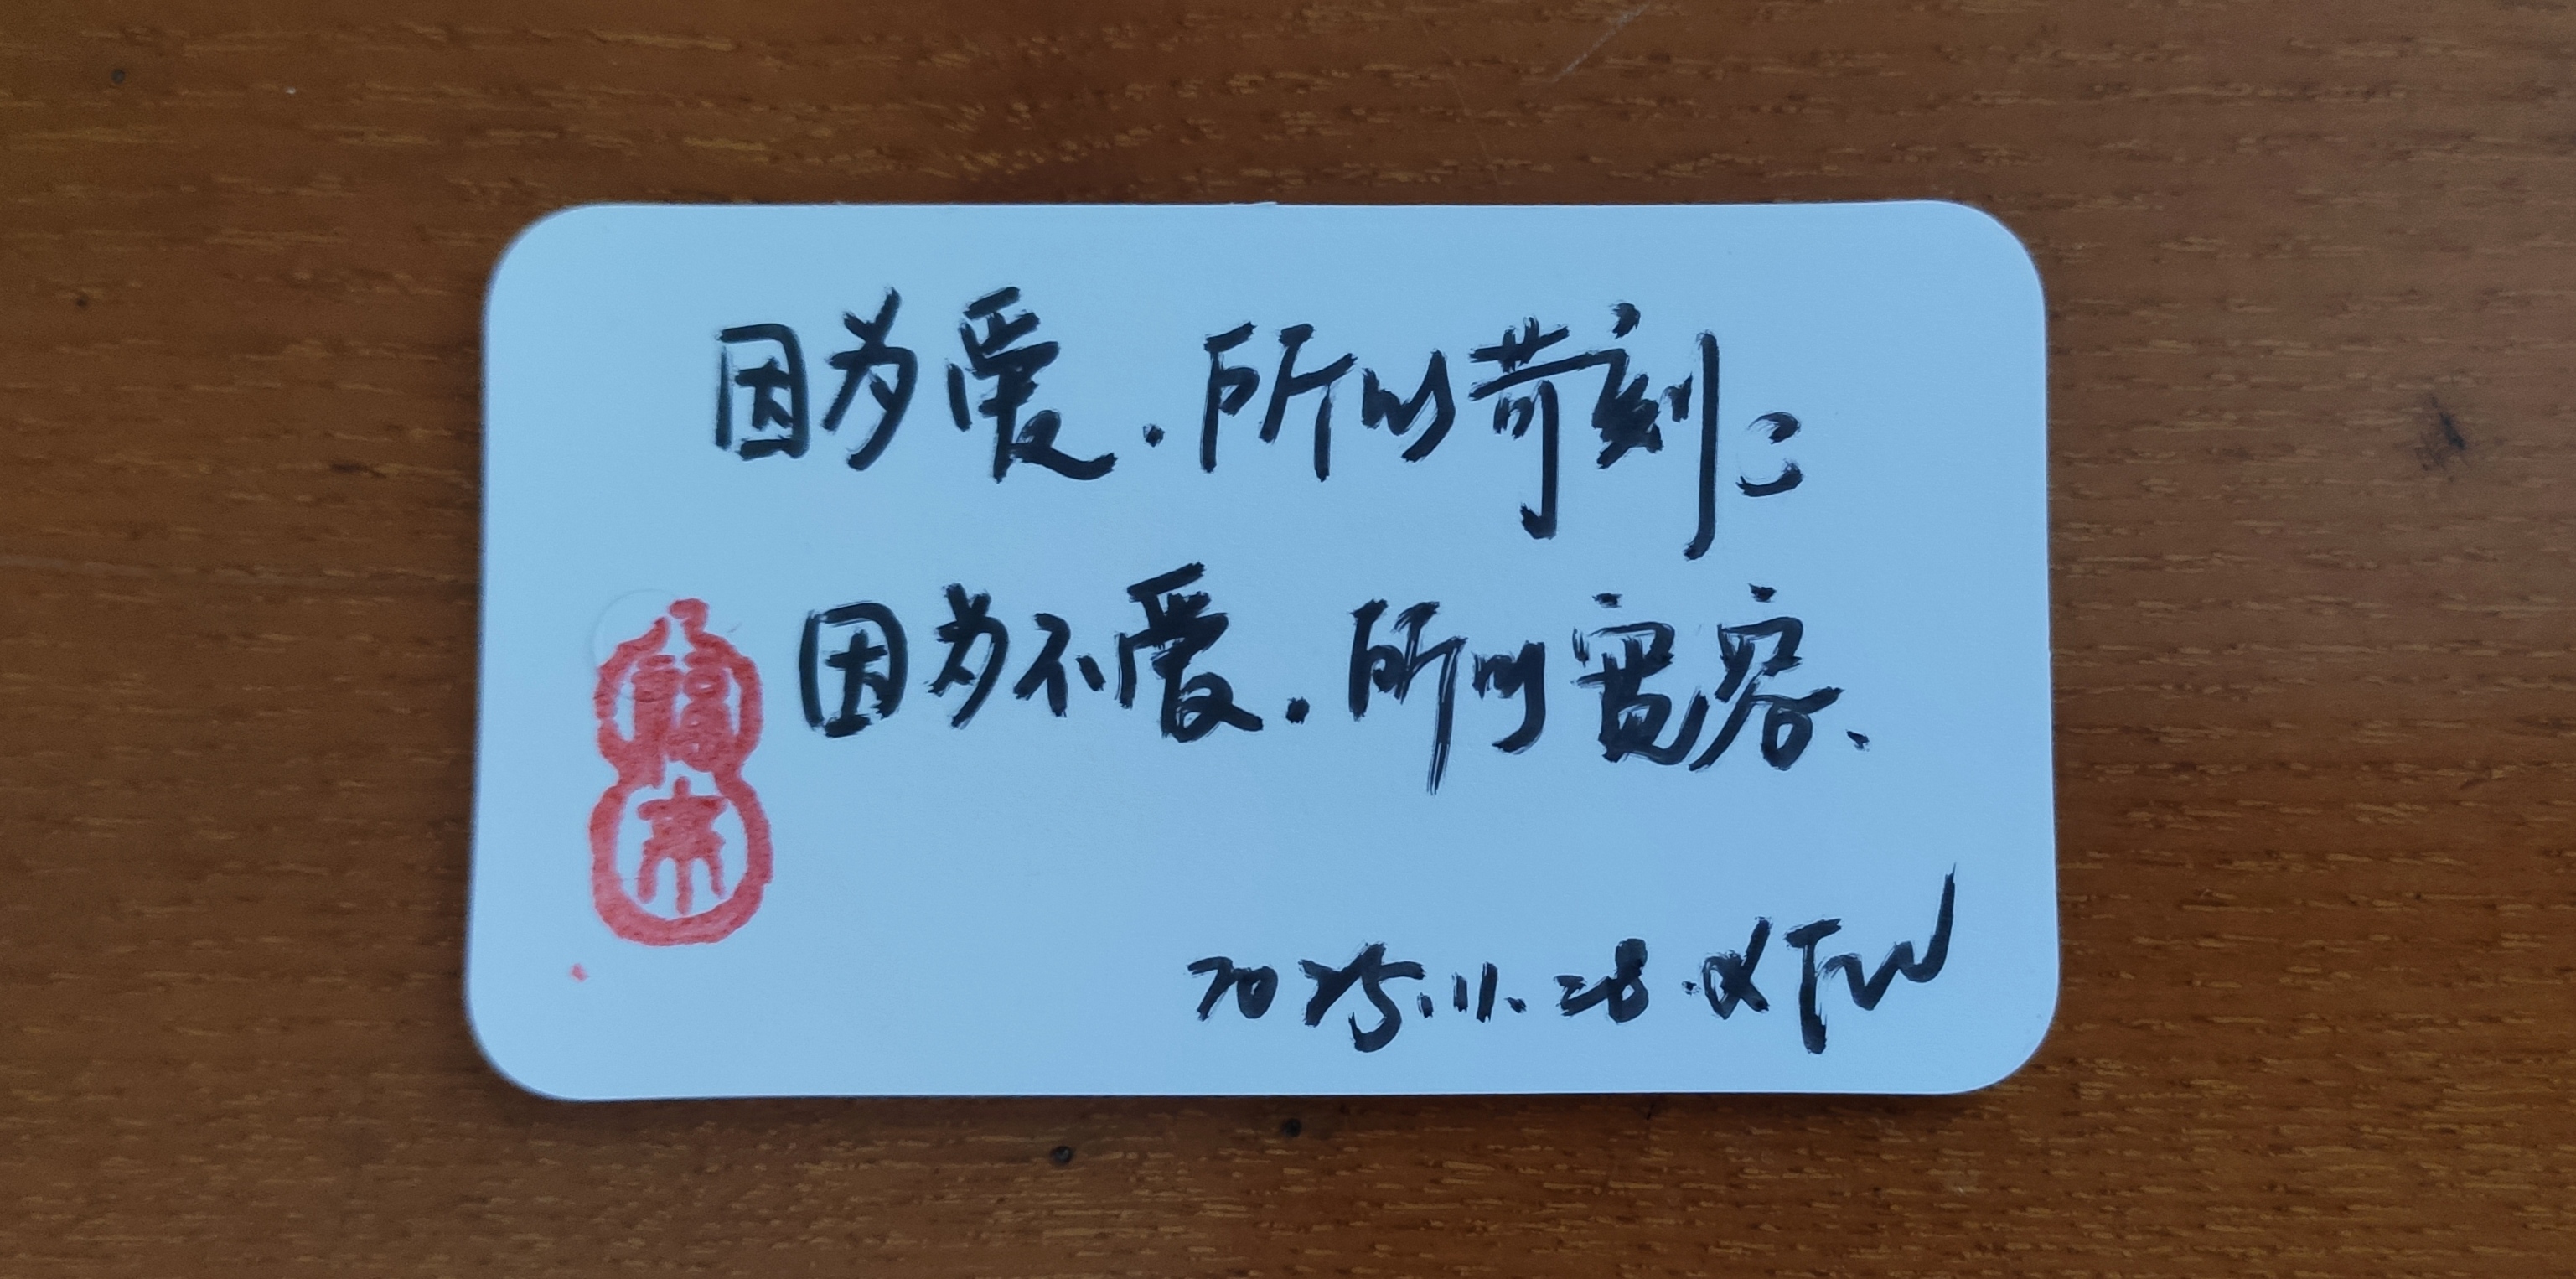 因为爱.所以苛刻;
因为不爱.所以宽容、
2025.11.28.